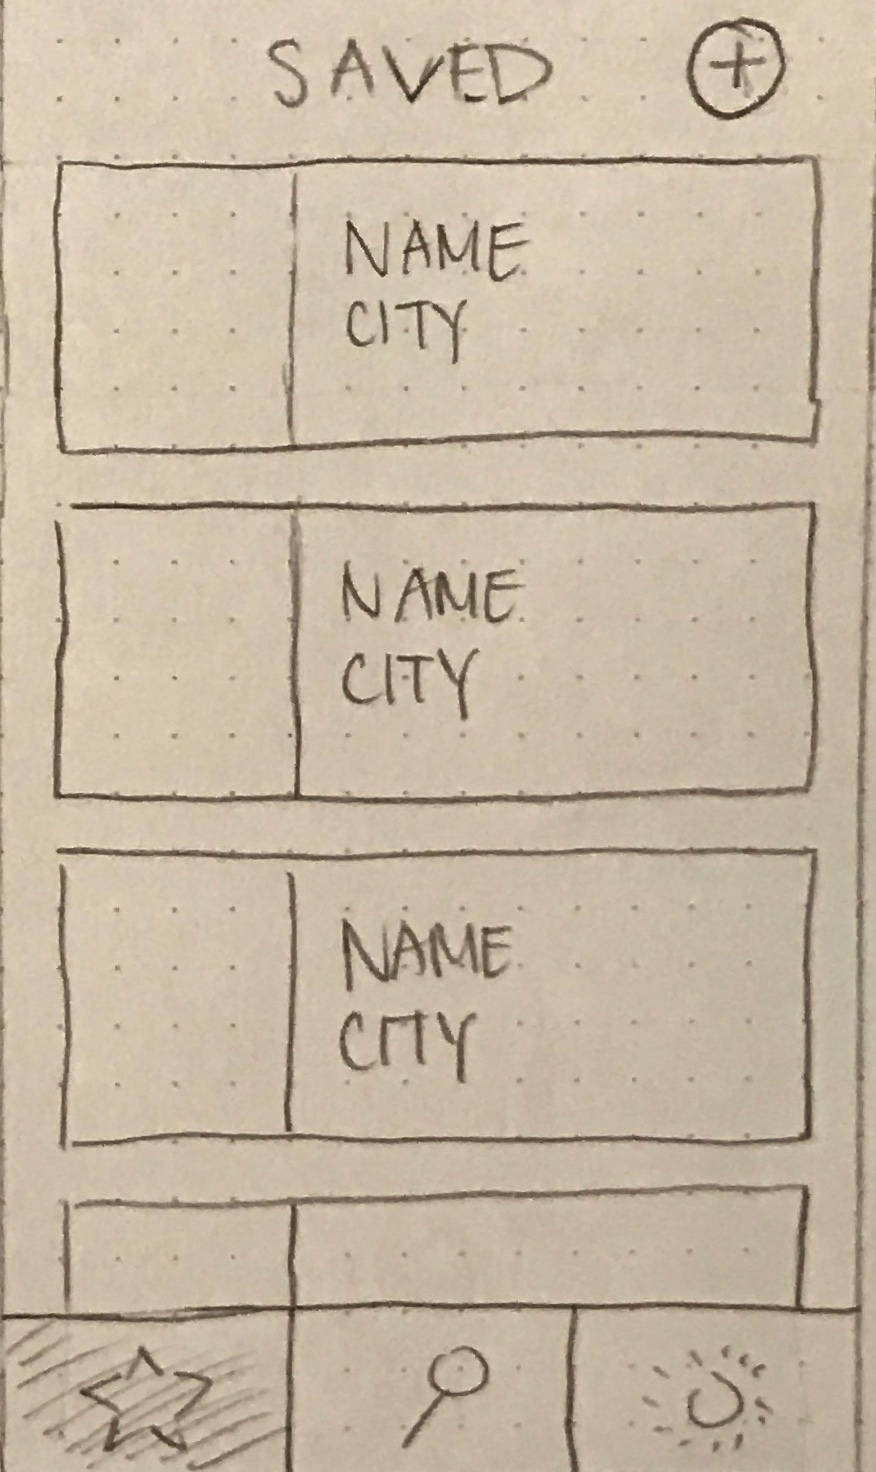 SAVED +
NAME
CITY
NAME
CITY
NAME
CITY